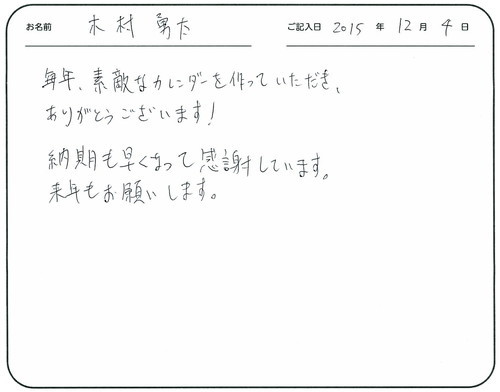 お名前 木村 勇太 ご記入日 2015 年 12 月 4 日
毎年、素敵なカレンダーを作っていただき、
ありがとうございます!
納期も早くなって感謝しています。
来年もお願いします。